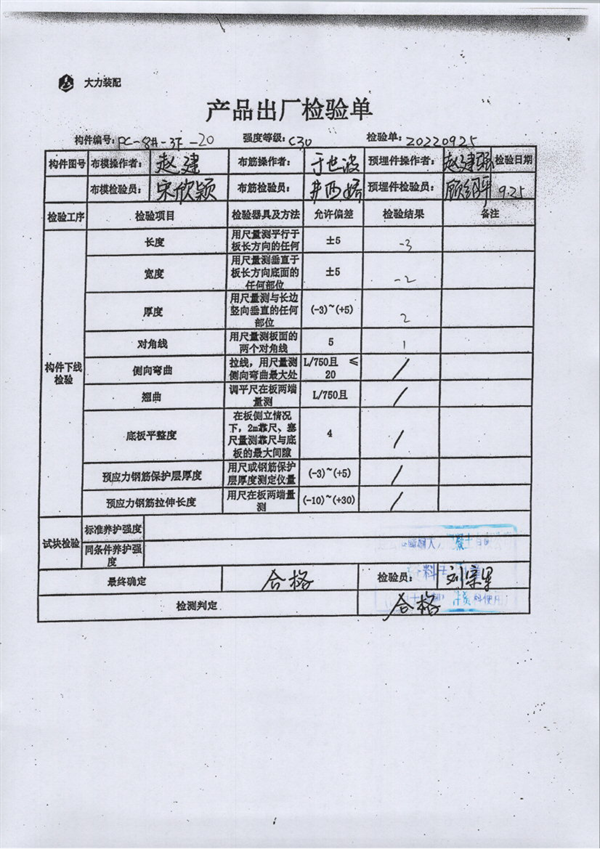 大力装配
产品出厂检验单
构件编号: PC-8#-3F-20 强度等级: C30 检验单: 20220925
构件图号 布模操作者: 赵建 布筋操作者: 于世波 预埋件操作者: 赵建 检验日期
布模检验员: 宋欣颖 布筋检验员: 预埋件检验员: 9.25
检验工序 检验项目 检验器具及方法 允许偏差 检验结果 备注
构件下线检验
长度 用尺量测平行于板长方向的任何 ±5 -3
宽度 用尺量测垂直于板长方向底面的任何部位 ±5 -2
厚度 用尺量测与长边竖向垂直的任何部位 (-3)~(+5) 2
对角线 用尺量测板面的两个对角线 5 1
侧向弯曲 拉线，用尺量测侧向弯曲最大处 L/750且 ≤20 /
翘曲 调平尺在板两端量测 L/750且 /
底板平整度 在板侧立情况下，2m靠尺、塞尺量测靠尺与底板的最大间隙 4 /
预应力钢筋保护层厚度 用尺或钢筋保护层厚度测定仪量 (-3)~(+5) /
预应力钢筋拉伸长度 用尺在板两端量测 (-10)~(+30) /
试块检验 标准养护强度
同条件养护强度
最终确定 合格 检验员:
检测判定 合格